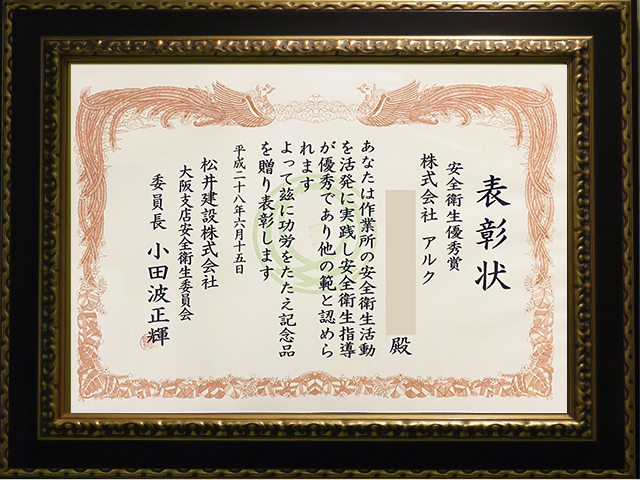 表彰状
安全衛生優秀賞
株式会社 アルク
殿
あなたは作業所の安全衛生活動
を活発に実践し安全衛生指導
が優秀であり他の範と認めら
れます
よって茲に功労をたたえ記念品
を贈り表彰します
平成二十八年六月十五日
松井建設株式会社
大阪支店安全衛生委員会
委員長 小田波正輝